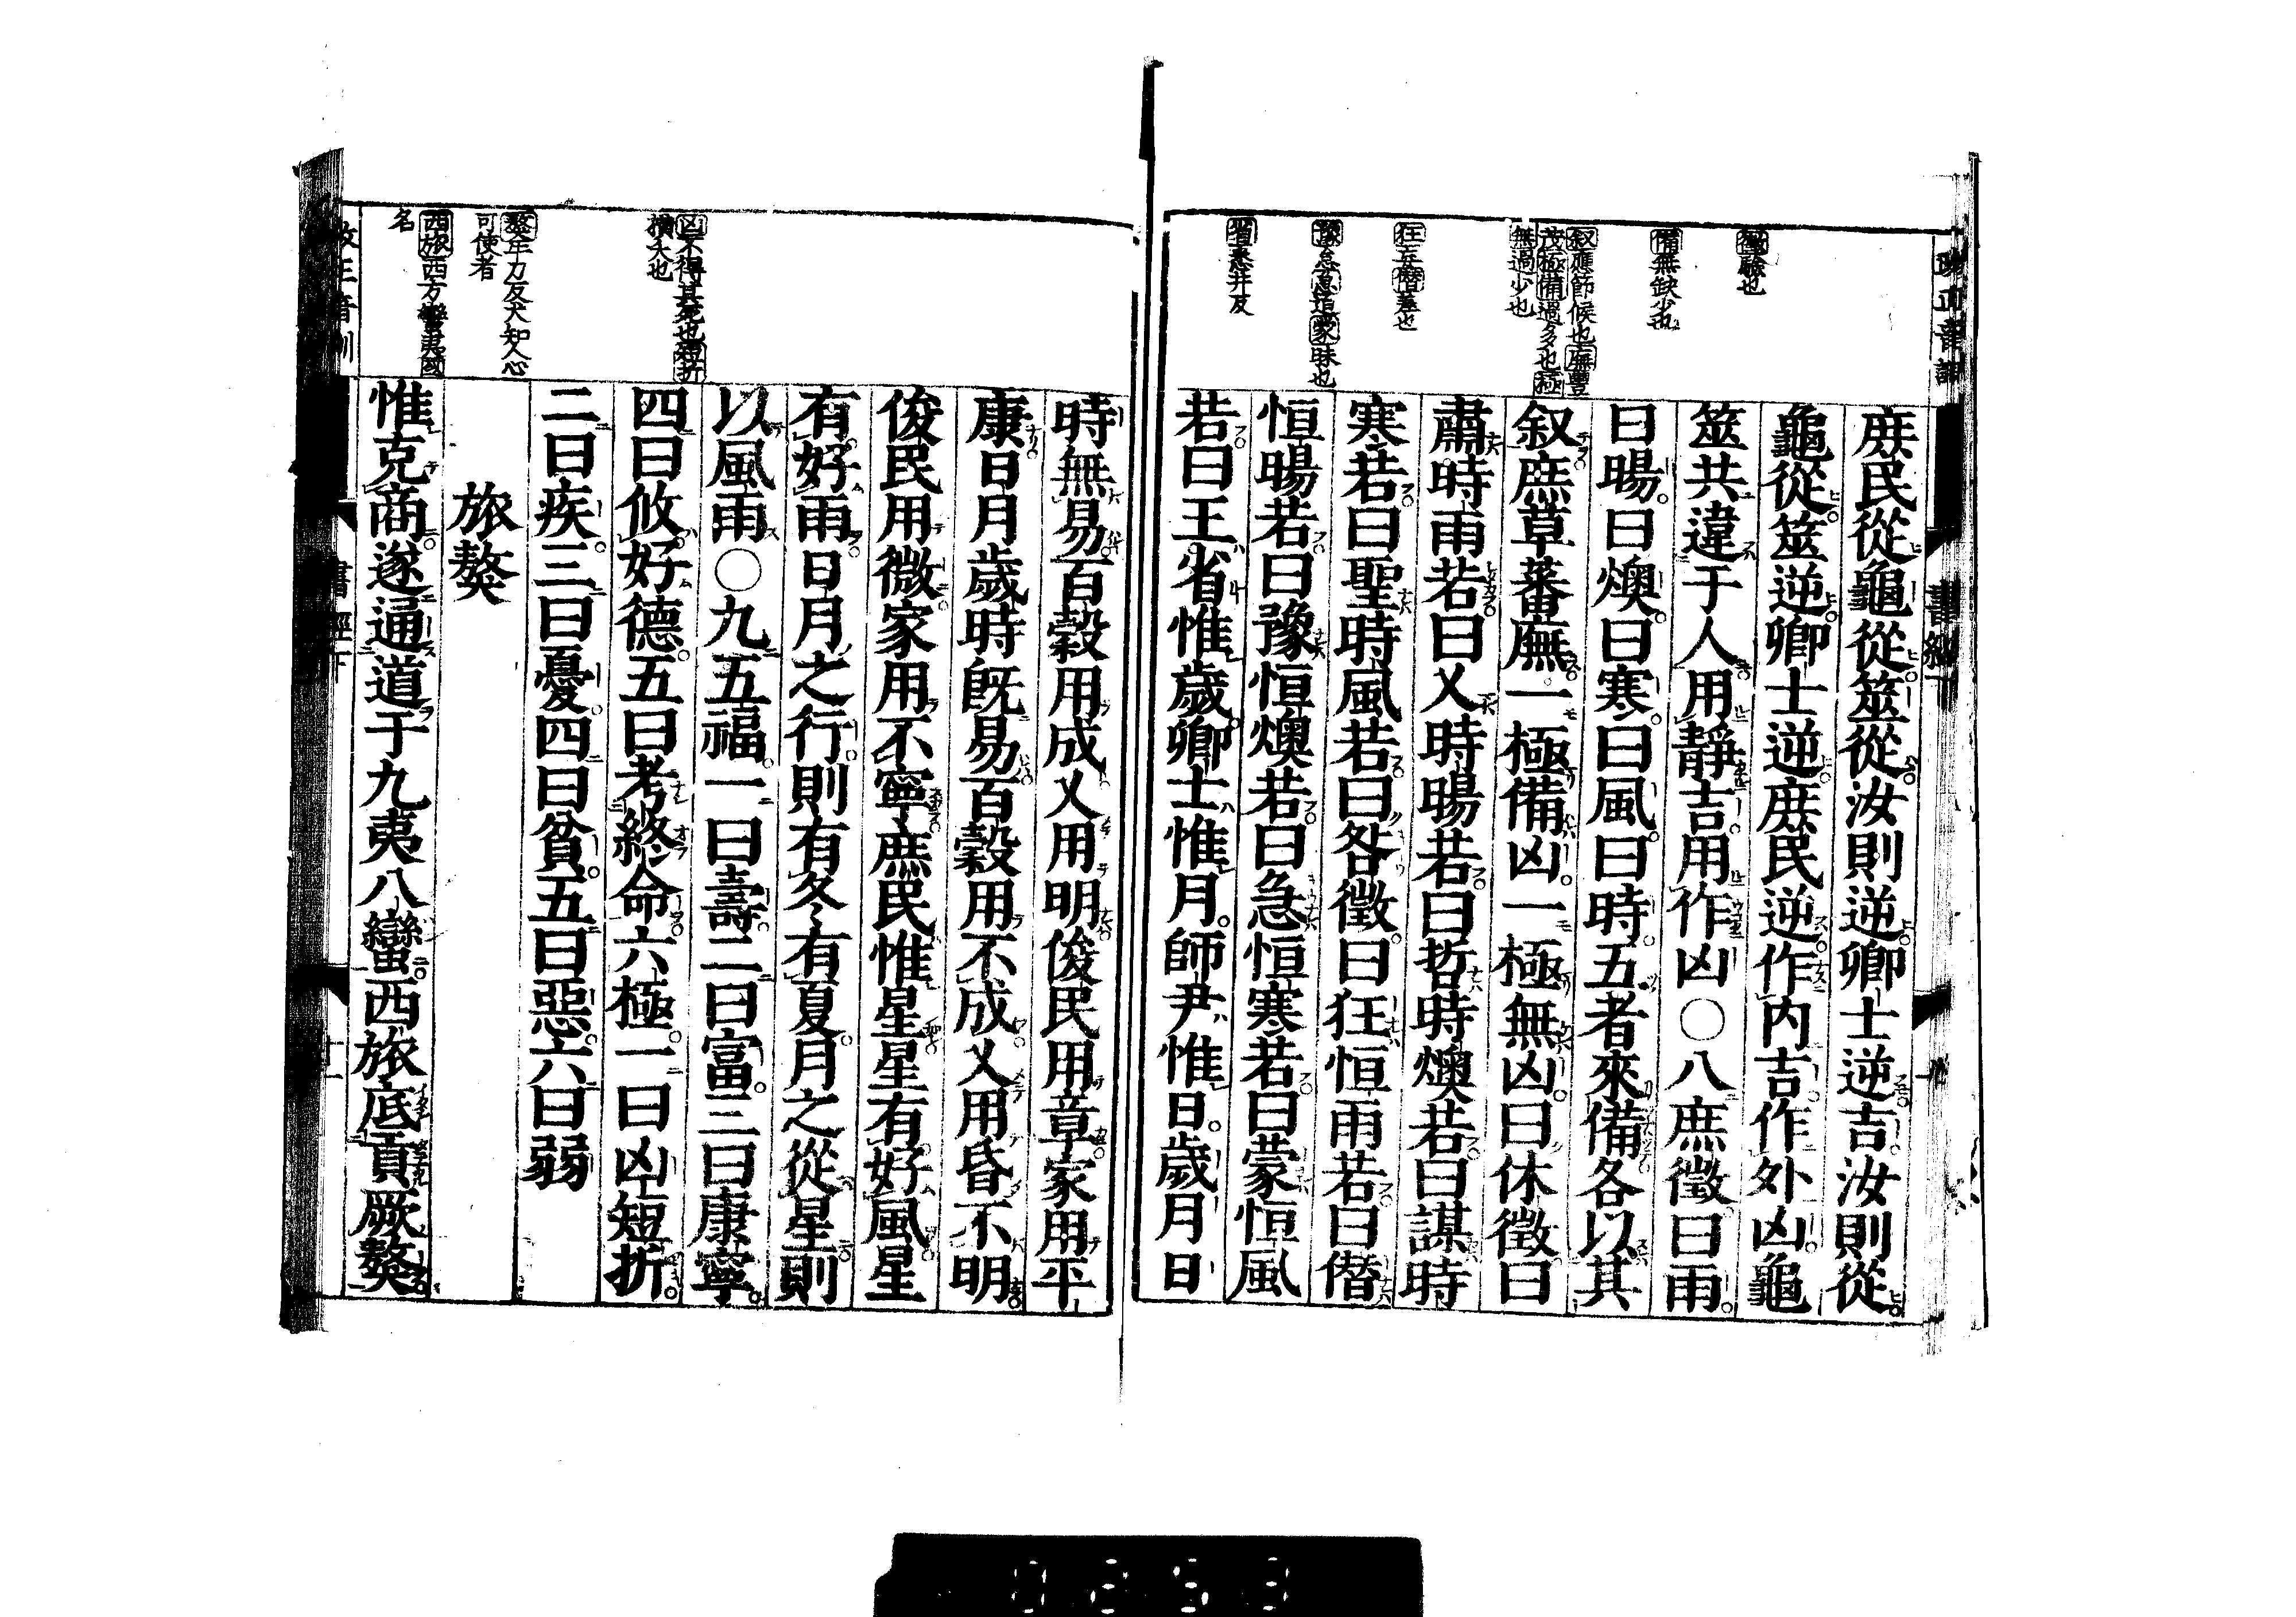 徵驗也
備無缺少也
叙應節候也廡豐
茂極備過多也極
無過少也
狂妄僭差也
豫怠急迫蒙昧也
省悉井反
庶民從龜從筮從汝則逆卿士逆吉汝則從
龜從筮逆卿士逆庶民逆作內吉作外凶龜
筮共違于人用靜吉用作凶○八庶徵曰雨
曰暘曰燠曰寒曰風曰時五者來備各以其
叙庶草蕃廡一極備凶一極無凶曰休徵曰
肅時雨若曰乂時暘若曰哲時燠若曰謀時
寒若曰聖時風若曰咎徵曰狂恒雨若曰僭
恒暘若曰豫恒燠若曰急恒寒若曰蒙恒風
若曰王省惟歲卿士惟月師尹惟日歲月日
凶不得其死也短折
橫夭也
獒牛刀反犬知人心
可使者
西旅西方蠻夷國
名
時無易百穀用成乂用明俊民用章家用平
康日月歲時旣易百穀用不成乂用昏不明
俊民用微家用不寧庶民惟星星有好風星
有好雨日月之行則有冬有夏月之從星則
以風雨○九五福一曰壽二曰富三曰康寧
四曰攸好德五曰考終命六極一曰凶短折
二曰疾三曰憂四曰貧五曰惡六曰弱
旅獒
惟克商遂通道于九夷八蠻西旅底貢厥獒
書經下